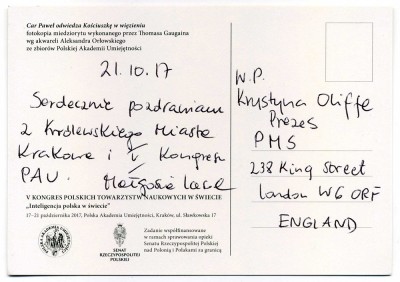 Car Paweł odwiedza Kościuszkę w więzieniu
fotokopia miedziorytu wykonanego przez Thomasa Gaugaina
wg akwareli Aleksandra Orłowskiego
ze zbiorów Polskiej Akademii Umiejętności
21.10.17
Serdecznie pozdrawiam
z Królewskiego Miasta
Krakowa i V Kongresu
PAU.
Małgosia
V KONGRES POLSKICH TOWARZYSTW NAUKOWYCH W ŚWIECIE
„Inteligencja polska w świecie”
17–21 października 2017, Polska Akademia Umiejętności, Kraków, ul. Sławkowska 17
POLSKA AKADEMIA UMIEJĘTNOŚCI
SENAT
RZECZYPOSPOLITEJ
POLSKIEJ
Zadanie współfinansowane
w ramach sprawowania opieki
Senatu Rzeczypospolitej Polskiej
nad Polonią i Polakami za granicą
W.P.
Krystyna Oliffe
Prezes
PMS
238 King Street
London W6 0RF
ENGLAND